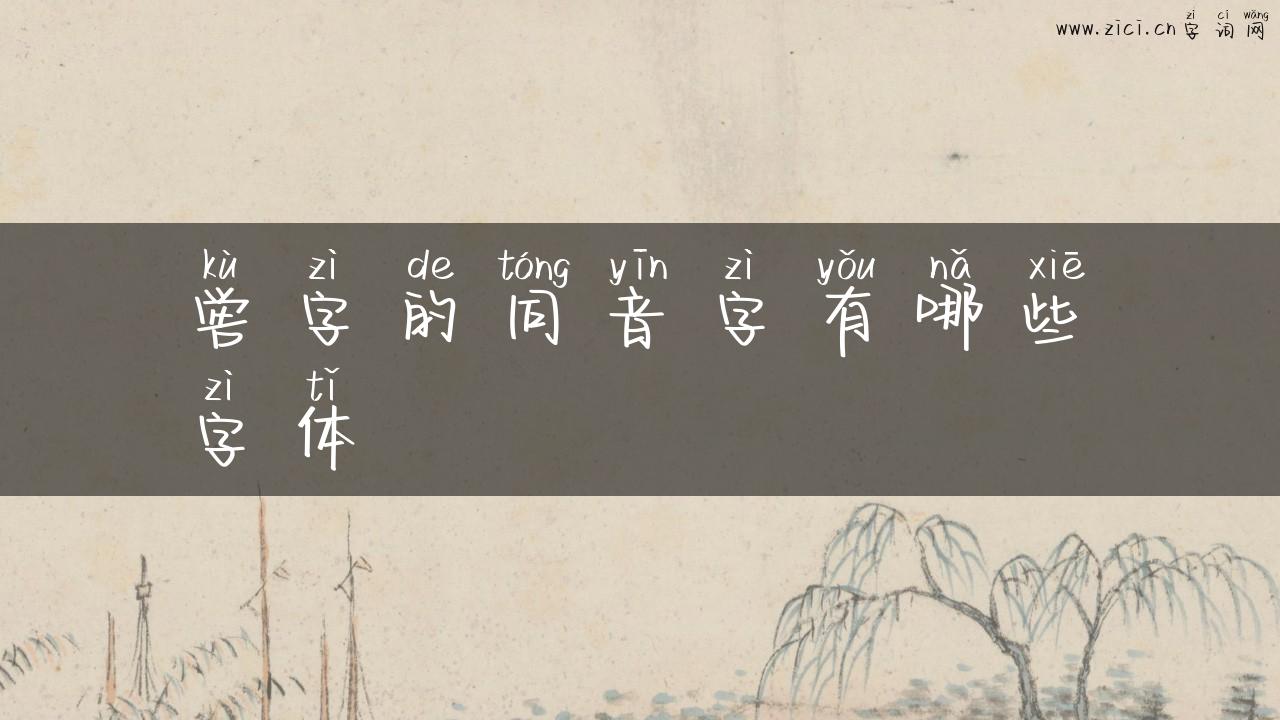 www.zici.cn 字词网
zì cí wǎng
kù zì de tóng yīn zì yǒu nǎ xiē
喾字的同音字有哪些
zì tǐ
字体